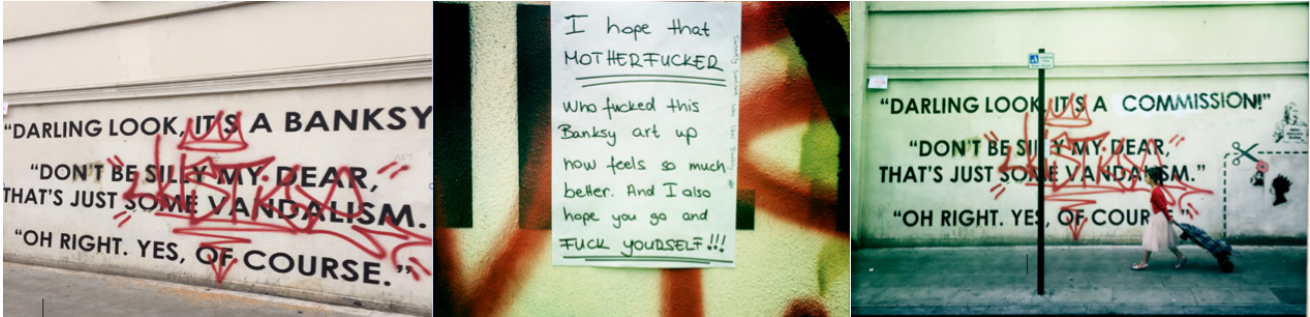 "DARLING LOOK, IT'S A BANKSY
"DON'T BE SILLY MY DEAR,
THAT'S JUST SOME VANDALISM.
"OH RIGHT. YES, OF COURSE."
I hope that
MOTHERFUCKER
Who fucked this
Banksy art up
now feels so much
better. And I also
hope you go and
FUCK YOURSELF!!!
"DARLING LOOK, IT'S A COMMISSION!"
"DON'T BE SILLY MY DEAR,
THAT'S JUST SOME VANDALISM."
"OH RIGHT. YES, OF COURSE."